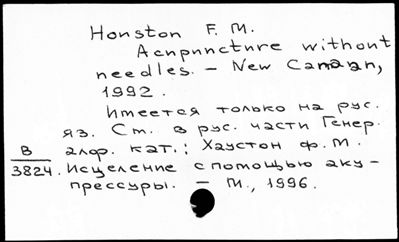 Houston F. M.
Acupuncture without
needles. – New Canaan,
1992.
Имеется только на рус.
яз. См. в рус. части Генер.
алф. кат.: Хаустон Ф. М.
В
3824. Исцеление с помощью аку-
прессуры. – М., 1996.